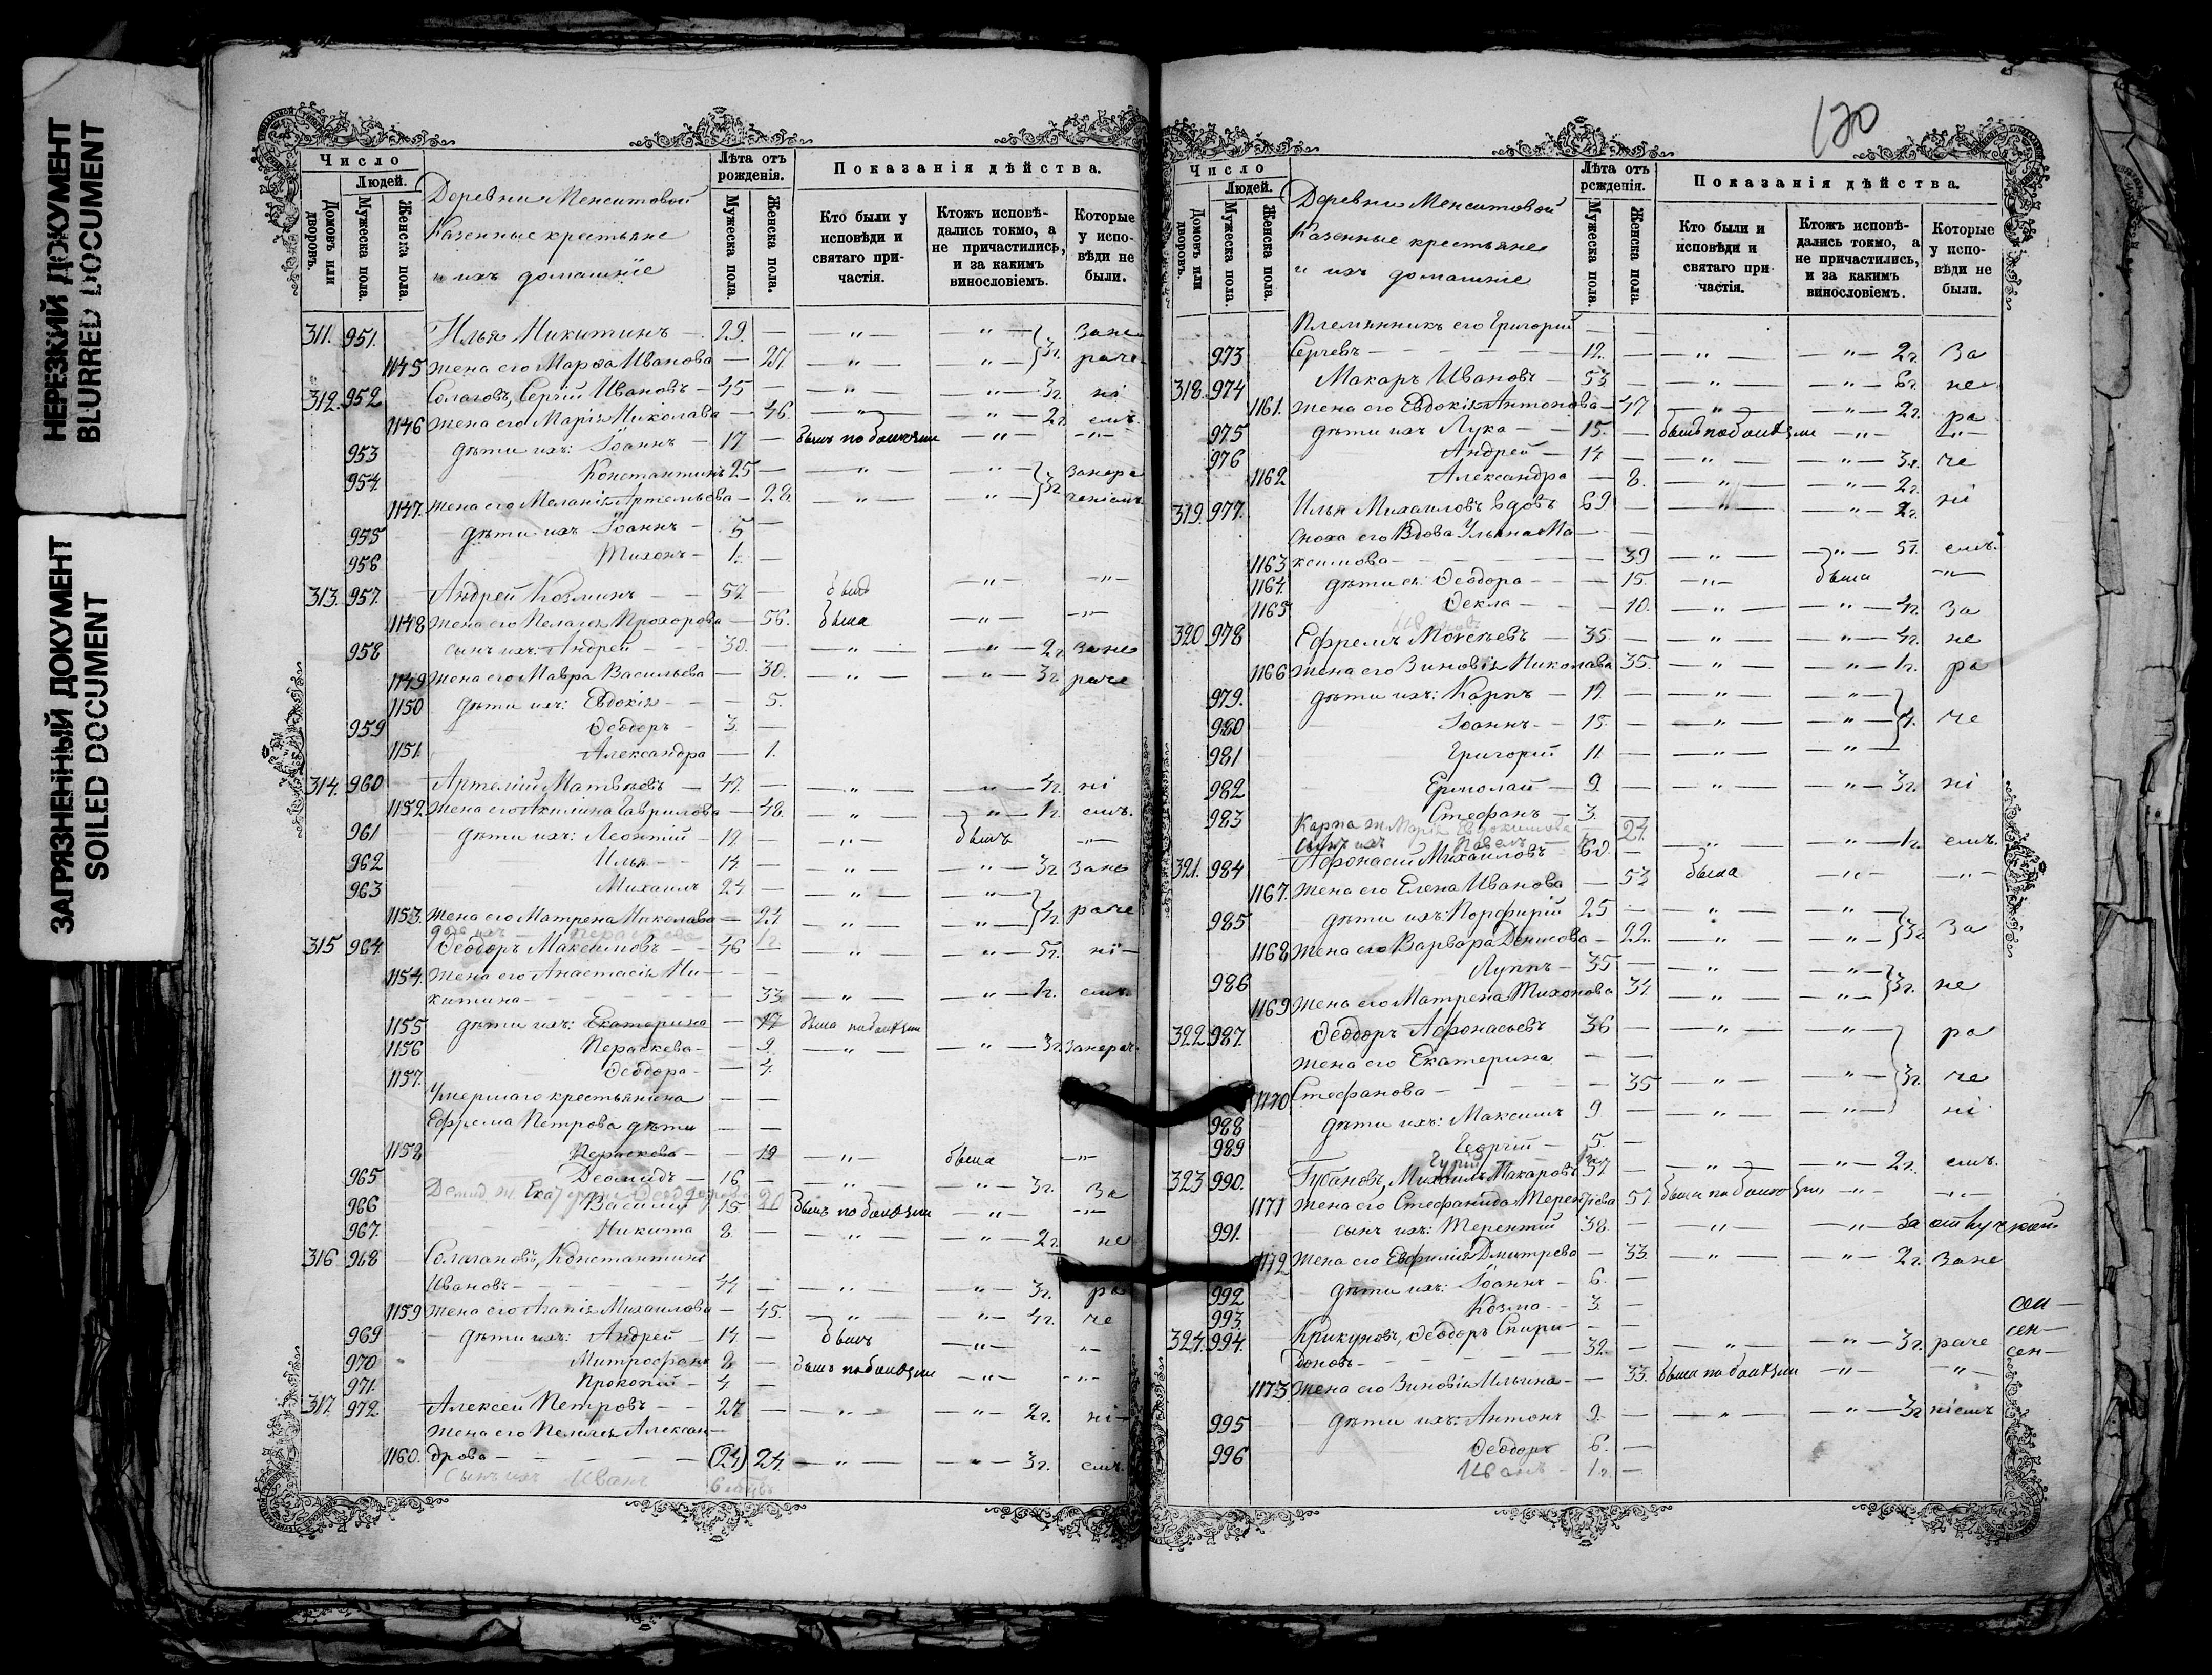 НЕРЕЗКИЙ ДОКУМЕНТ
BLURRED DOCUMENT
ЗАГРЯЗНЕННЫЙ ДОКУМЕНТ
SOILED DOCUMENT
Число
Людей.
Домовъ или дворовъ.
Мужеска пола.
Женска пола.
Деревни Менситовой
Казенные крестьяне
и ихъ домашніе
Лѣта отъ рожденія.
Мужеска пола.
Женска пола.
Показанія дѣйства.
Кто были у исповѣди и святаго причастія.
Ктожъ исповѣдались токмо, а не причастились, и за какимъ винословіемъ.
Которые у исповѣди не были.
311. 951. Илья Никитинъ — 29. — — „ — — „ — Зане
1145 жена его Марѳа Иванова — 27. — „ — — „ — 3г. раче
312. 952 Солаговъ, Сергій Ивановъ — 45 — — „ — — „ — 3г. ні
1146 жена его Марія Николава — 46. — „ — — „ — 2г емъ.
953 дѣти ихъ: Іоаннъ — 17 — былъ по болѣзни — „ — — „ —
954. Константинъ 25 — — „ — — „ — Занера
1147. жена его Меланія Артемьева — 28. — „ — — „ — 3г ченіемъ
955 дѣти ихъ Іоаннъ — 5 —
956 Тихонъ — 1. —
313. 957. Андрей Козминъ — 57. — былъ — „ — — „ —
1148 жена его Пелагея Прохорова — 56. была — „ — — „ —
958 сынъ ихъ: Андрей — 30. — — „ — — „ — 2г Зане
1149 жена его Мавра Васильева — 30. — „ — — „ — 3г раче
1150 дѣти ихъ: Евдокія — 5.
959 Ѳеодоръ — 3. —
1151. Александра — 1.
314. 960 Артемій Матвѣевъ — 47. — — „ — — „ — 4г. ні
1152 жена его Акилина Гаврилова — 48. — „ — — „ — 1г. емъ.
961 дѣти ихъ: Леонтій — 19 — — „ — былъ — „ —
962 Илья — 14. — — „ — — „ — 3г Зане
963 Михаилъ 24 — — „ — — „ —
1153. жена его Матрена Николава — 24 — „ — — „ — 4г. раче
315 964. Ѳеодоръ Максимовъ — 46 — „ — — „ — 5г. ні —
1154. жена его Анастасія Ни-
китина — 33 — „ — — „ — 1г. емъ.
1155 дѣти ихъ: Екатерина — 17 была по болѣзни
1156 Пераскева — 9. — „ — — „ — 3г. Занерач.
1157. Ѳеодора — 4.
Умершаго крестьянина — —
Ефрема Петрова дѣти — —
1158 Пераскева — 19 — „ — была — „ —
965 Деомидъ — 16 — — „ — — „ — 3г. За
966 Василій 15 20 былъ по болѣзни — „ — — „ —
967. Никита 8. — — „ — — „ — 2г. не
316 968 Солагановъ, Константинъ
Ивановъ — 44 — — „ — — „ — 3г. ра
1159 жена его Агапія Михаилова — 45. — „ — — „ — 4г. че
969 дѣти ихъ: Андрей — 14. — былъ — „ — — „ —
970 Митрофанъ 8 — былъ по болѣзни — „ — — „ —
971. Прокопій — 4. —
317. 972. Алексей Петровъ — 27 — — „ — — „ — 2г. ні —
жена его Пелагея Алексан-
1160. дрова — (24) 24. — „ — — „ — 3г. емъ.
Сынъ ихъ Иванъ
120
Число
Людей.
Домовъ или дворовъ.
Мужеска пола.
Женска пола.
Деревни Менситовой
Казенные крестьяне
и ихъ домашніе
Лѣта отъ рожденія.
Мужеска пола.
Женска пола.
Показанія дѣйства.
Кто были и исповѣди и святаго причастія.
Ктожъ исповѣдались токмо, а не причастились, и за какимъ винословіемъ.
Которые у исповѣди не были.
Племянникъ его Григорій — —
973 Сергевъ — 12. — — „ — — „ — 2г. За
318. 974 Макаръ Ивановъ — 53 — — „ — — „ — 6г. не
1161. жена его Евдокія Антонова — 47 — „ — — „ — 2г. ра
975 дѣти ихъ Лука — 15. — былъ по болѣзни — „ — — „ —
976 Андрей — 14 — — „ — — „ — 3г. че
1162 Александра — 8. — „ — — „ — 2г.
319. 977. Илья Михаиловъ вдовъ 69 — — „ — — „ — 2г. ні
сноха его Вдова Ульяна Ма-
1163 ксимова — 39 — „ — — „ — 5г. емъ.
1164. дѣти ея: Ѳеодора — 15. — „ — была — „ —
1165 Ѳекла — 10. — „ — — „ — 4г. За
320 978 Ефремъ Моисеевъ — 35. — — „ — — „ — 4г. не
1166 жена его Зиновія Николава 35. — „ — — „ — 1г. ра
979. дѣти ихъ: Карпъ — 17 — — „ — — „ —
980 Іоаннъ — 15. — — „ — — „ — 4г. че
981 Григорій 11 — — „ — — „ —
982 Ермолай — 9. — — „ — — „ — 3г. ні
983 Стефанъ — 3. —
Карпа ж. Марія Евдокимова — 24.
сынъ ихъ Павелъ
321. 984 Афонасій Михаиловъ 60. — — „ — — „ — 1г. емъ.
1167. жена его Елена Иванова — 53 была — „ — — „ —
985 дѣти ихъ: Порфирій 25 — — „ — — „ —
1168. жена его Варвара Денисова — 22. — „ — — „ — 3г За
986 Луппъ — 35 — — „ — — „ —
1169 жена его Матрена Тихонова 34. — „ — — „ — 3г. не
322. 987. Ѳеодоръ Афонасьевъ 36 — — „ — — „ — ра
жена его Екатерина — —
1170 Стефанова — 35 — „ — — „ — 3г. че
988 дѣти ихъ: Максимъ 9 — — „ — — „ — ні
989 Георгій — 5. —
Гурій
323 990. Губановъ, Михаилъ Макаровъ 57. — — „ — — „ — 2г. емъ.
1171 жена его Стефанида Терентіева 57. была по болѣзни — „ — — „ —
991. сынъ ихъ: Терентій 38. — — „ — — „ — За отлучкой
1172 жена его Евфимія Дмитрева — 33. — „ — — „ — 2г. Зане
992 дѣти ихъ: Іоаннъ — 6. —
993. Козма — 3. —
324. 994. Крикуновъ, Ѳеодоръ Спири-
доновъ — 32. — — „ — — „ — 3г. раче
1173. жена его Зиновія Ильина — 33. была по болѣзни — „ — — „ —
995 дѣти ихъ: Антонъ 9. — — „ — — „ — 3г ніемъ
996 Ѳеодоръ 6. —
Иванъ — 1г. —
сен —
сен —
сен —